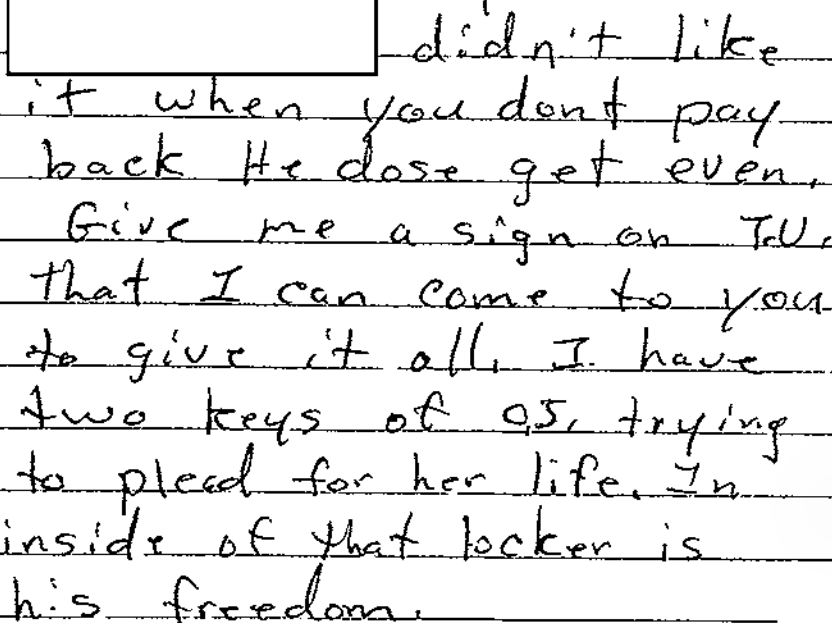 didn't like
it when you dont pay
back He dose get even.
Give me a sign on T.V.
that I can come to you
to give it all. I have
two keys of trying
to plead for her life. In
inside of that locker is
his freedom.